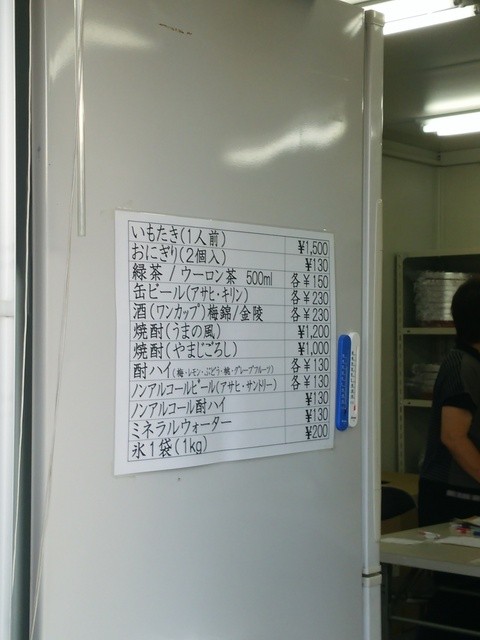 いもたき(1人前) ¥1,500
おにぎり(2個入) ¥130
緑茶 / ウーロン茶 500ml 各¥150
缶ビール(アサヒ・キリン) 各¥230
酒(ワンカップ)梅錦/金陵 各¥230
焼酎(うまの風) ¥1,200
焼酎(やまじごろし) ¥1,000
酎ハイ(梅・レモン・ぶどう・桃・グレープフルーツ) 各¥130
ノンアルコールビール(アサヒ・サントリー) 各¥130
ノンアルコール酎ハイ ¥130
ミネラルウォーター ¥130
氷1袋(1kg) ¥200